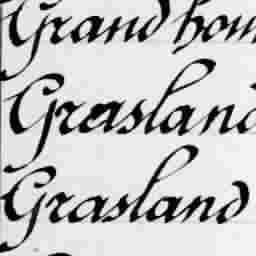 Grand hou
Grasland
Grasland